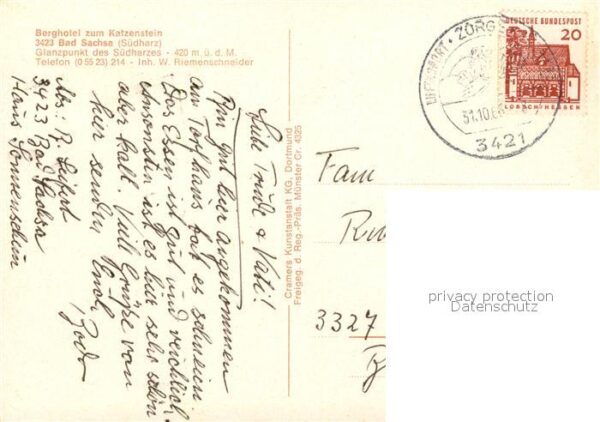 Berghotel zum Katzenstein
3423 Bad Sachsa (Südharz)
Glanzpunkt des Südharzes - 420 m ü. d. M.
Telefon (0 55 23) 214 - Inh. W. Riemenschneider
Liebe Trude & Vati!
Bin gut hier angekommen
am Torfhaus hat es schneien
Das Essen ist gut und reichlich.
Ansonsten ist es hier sehr schön
aber kalt Viele Grüße von
hier sendet Euch
Abs: R. Seifert
3423 Bad Sachsa
Haus Sonnenschein
Cramers Kunstanstalt KG, Dortmund
Freigeg. d. Reg.-Präs. Münster Cr. 4325
LUFTKURORT · ZORGE
31.10.66
3421
DEUTSCHE BUNDESPOST
20
LORSCH/HESSEN
Fam
3327
privacy protection
Datenschutz